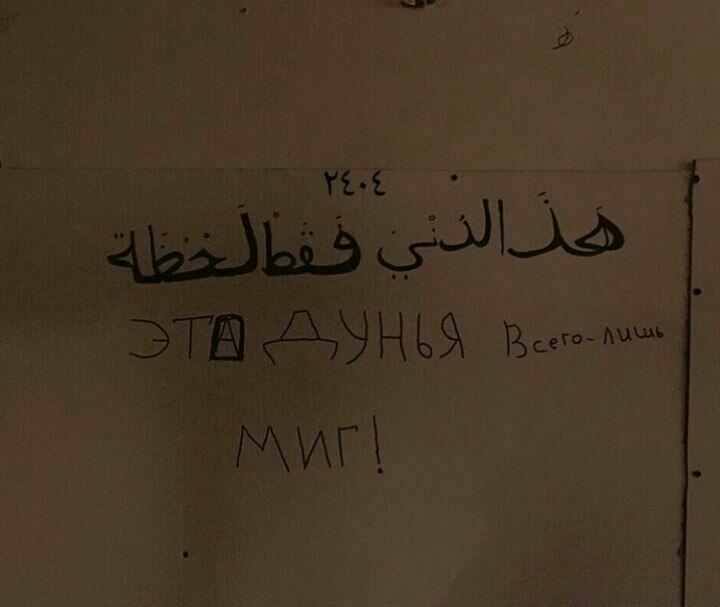 ٢٤٠٤
هَذَ الدُنْيَ فَقَطْ لَحْظَة
ЭТА ДУНЬЯ Всего-лишь
МИГ!